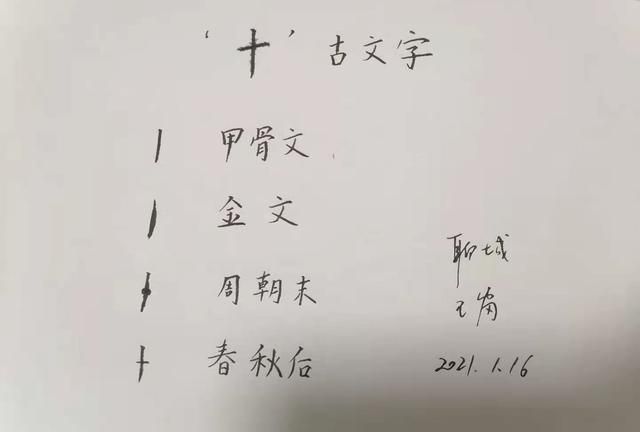 ‘十’古文字
甲骨文
金文
周朝末
春秋后
聊城
2021.1.16